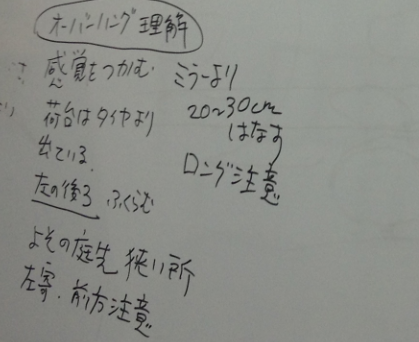 オーバーハング理解
感覚をつかむ
荷台はタイヤより
出ている。
左の後ろ ふくらむ
よその庭先 狭い所
左寄、前方注意
ミラーより
20~30cm
はなす
ロング注意